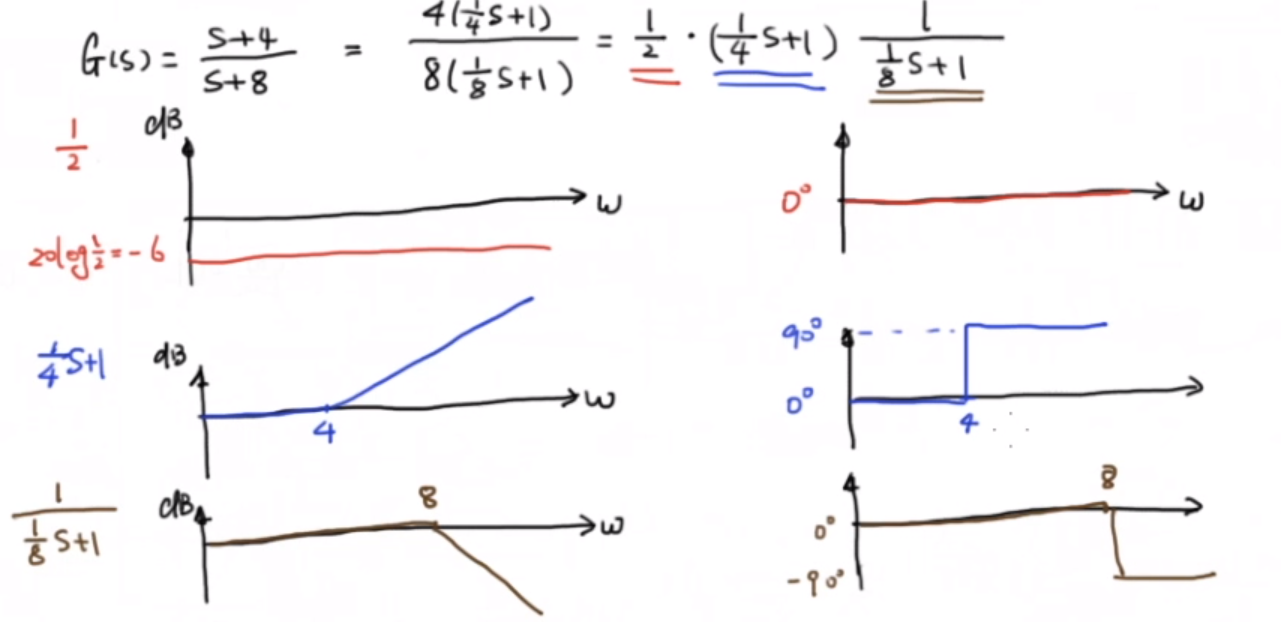 G(s) = (s+4)/(s+8) = 4(1/4 s+1)/8(1/8 s+1) = 1/2 · (1/4 s+1) 1/(1/8 s+1)
1/2
dB
ω
20log 1/2 = -6
0°
ω
1/4 s+1
dB
ω
4
90°
0°
4
1/(1/8 s+1)
dB
8
ω
8
0°
-90°